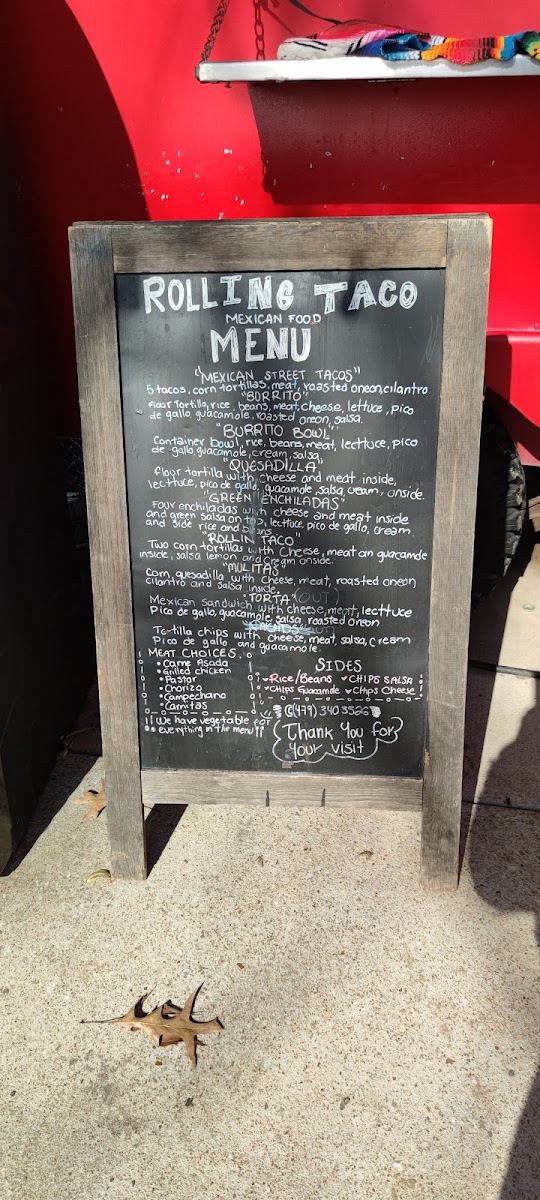 ROLLING TACO
MEXICAN FOOD
MENU
"MEXICAN STREET TACOS"
5 tacos, corn tortillas, meat, roasted oneon, cilantro
"BURRITO"
Flour Tortilla, rice, beans, meat, cheese, lettuce, pico
de gallo, guacamole, roasted oneon, salsa.
"BURRITO BOWL"
Container bowl, rice, beans, meat, lecttuce, pico
de gallo, guacamole, cream, salsa.
"QUESADILLA"
flour tortilla with cheese and meat inside,
lecttuce, pico de gallo, guacamole, salsa, cream, onside.
"GREEN ENCHILADAS"
Four enchiladas with cheese and meat inside
and green salsa on top, lecttuce, pico de gallo, cream
and side rice and beans
"ROLLIN TACO"
Two corn tortillas with cheese, meat an guacamole
inside, salsa lemon and cream onside.
"MULITAS"
corn quesadilla with cheese, meat, roasted oneon
cilantro and salsa inside.
"TORTA" (OUT)
Mexican Sandwich with cheese, meat, lecttuce
Pico de gallo, guacamole, salsa, roasted oneon
NACHOS (OUT)
Tortilla chips with cheese, meat, salsa, cream
Pico de gallo and guacamole.
MEAT CHOICES.
• Carne Asada
• Grilled chicken
• Pastor
• Chorizo
• Campechano
• Carnitas
!! We have vegetable FOR
everything in the menu!!
SIDES
Rice/Beans CHIPS SALSA
CHIPS Guacamole Chips Cheese
(479) 340 3526
Thank You for
Your visit